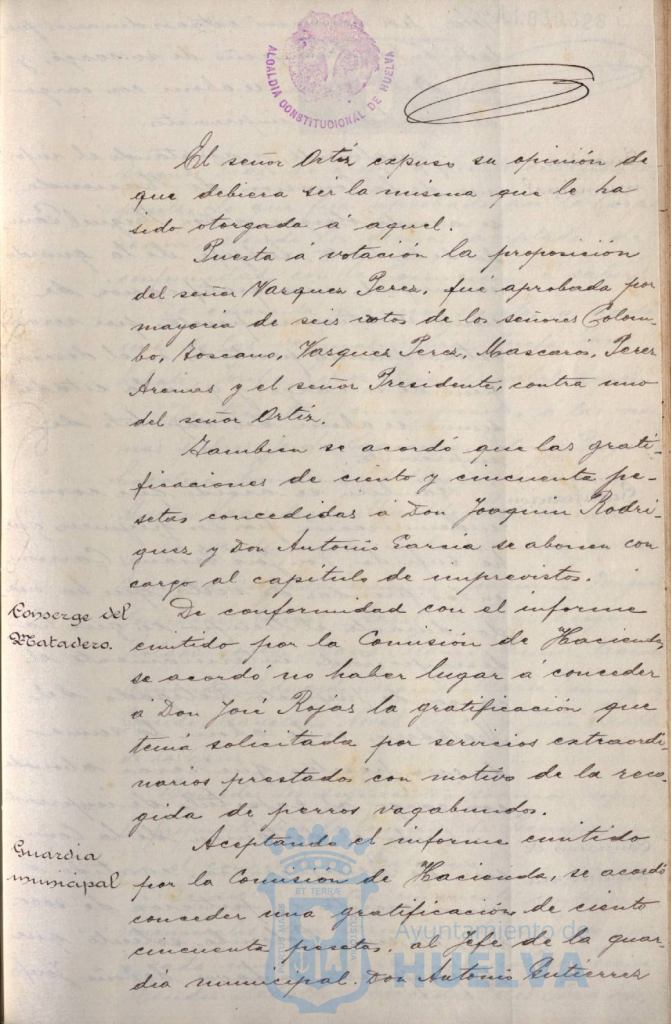 ALCALDIA CONSTITUCIONAL DE HUELVA
El señor Ortíz expuso su opinión de
que debiera ser la misma que le ha
sido otorgada á aquel.
Puesta á votación la proposición
del señor Vazquez Perez, fué aprobada por
mayoria de seis votos de los señores Colom-
bo, Toscano, Vazquez Perez, Mascarós, Perez
Arenas y el señor Presidente, contra uno
del señor Ortíz.
Tambien se acordó que las grati-
ficaciones de ciento y cincuenta pe-
setas concedidas á Don Joaquin Rodri-
guez y Don Antonio Garcia se abonen con
cargo al capítulo de imprevistos.
Conserge del
Matadero.
De conformidad con el informe
emitido por la Comisión de Hacienda,
se acordó no haber lugar á conceder
á Don José Rojas la gratificación que
tenia solicitada por servicios extraordi-
narios prestados con motivo de la reco-
gida de perros vagabundos.
Guardia
municipal
Aceptando el informe emitido
por la Comisión de Hacienda, se acordó
conceder una gratificación de ciento
cincuenta pesetas, al Jefe de la guar-
dia municipal, Don Antonio Gutierrez
Ayuntamiento de
HUELVA